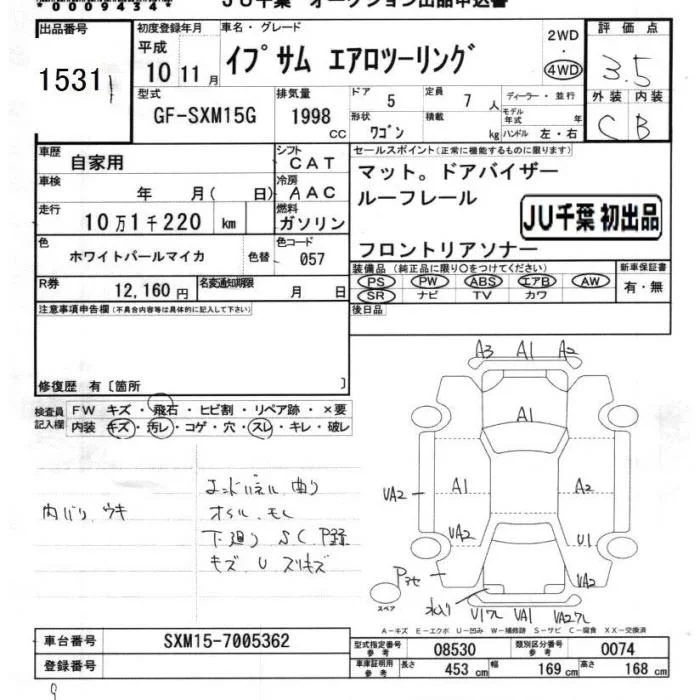 *0009454*
JU千葉 オークション出品申込書
出品番号
1531
初度登録年月
平成
10年11月
車名・グレード
イプサム エアロツーリング
2WD
・
4WD
評価点
3.5
型式
GF-SXM15G
排気量
1998
cc
ドア
5
定員
7人
形状
ワゴン
積載
kg
ディーラー・並行
モデル年式
年
ハンドル 左・右
外装 内装
C B
車歴
自家用
シフト
CAT
車検
年 月( 日)
冷房
AAC
走行
10万1千220 km
燃料
ガソリン
色
ホワイトパールマイカ
色替
色コード
057
R券
12,160円
名変通知期限
月 日
セールスポイント(正常に機能するものに限ります)
マット。ドアバイザー
ルーフレール
JU千葉 初出品
フロントリアソナー
装備品(純正品に限り○をつけてください)
PS PW ABS エアB AW
SR ナビ TV カワ
新車保証書
有・無
後日品
注意事項申告欄(不具合内容等は具体的に記入して下さい)
修復歴 有〔箇所 〕
検査員記入欄
FW キズ・飛石・ヒビ割・リペア跡・×要
内装 キズ・汚レ・コゲ・穴・スレ・キレ・破レ
内バリ ウキ
オイル モレ
下廻り SC
キズ U スリキズ
A3 A1 A2
A1
VA2 A1 A2
VA2 U1
VA2
スペア
VA1
A−キズ E−エクボ U−凹み W−補修跡 S−サビ C−腐食 XX−交換済
車台番号
SXM15-7005362
登録番号
型式指定番号 参考
08530
類別区分番号 参考
0074
車庫証明用 参考
長さ 453 cm 幅 169 cm 高さ 168 cm